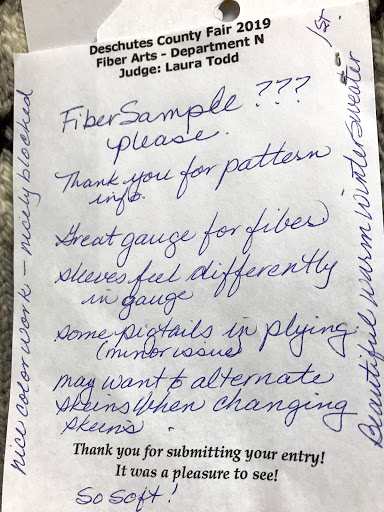 Deschutes County Fair 2019
Fiber Arts - Department N
Judge: Laura Todd
1st.
Fiber Sample ???
please.
Thank you for pattern
info.
Great gauge for fiber
sleeves feel differently
in gauge
some pigtails in plying
(minor issue)
may want to alternate
skeins when changing
skeins.
Thank you for submitting your entry!
It was a pleasure to see!
So soft!
nice colorwork - nicely blocked
Beautiful warm winter sweater